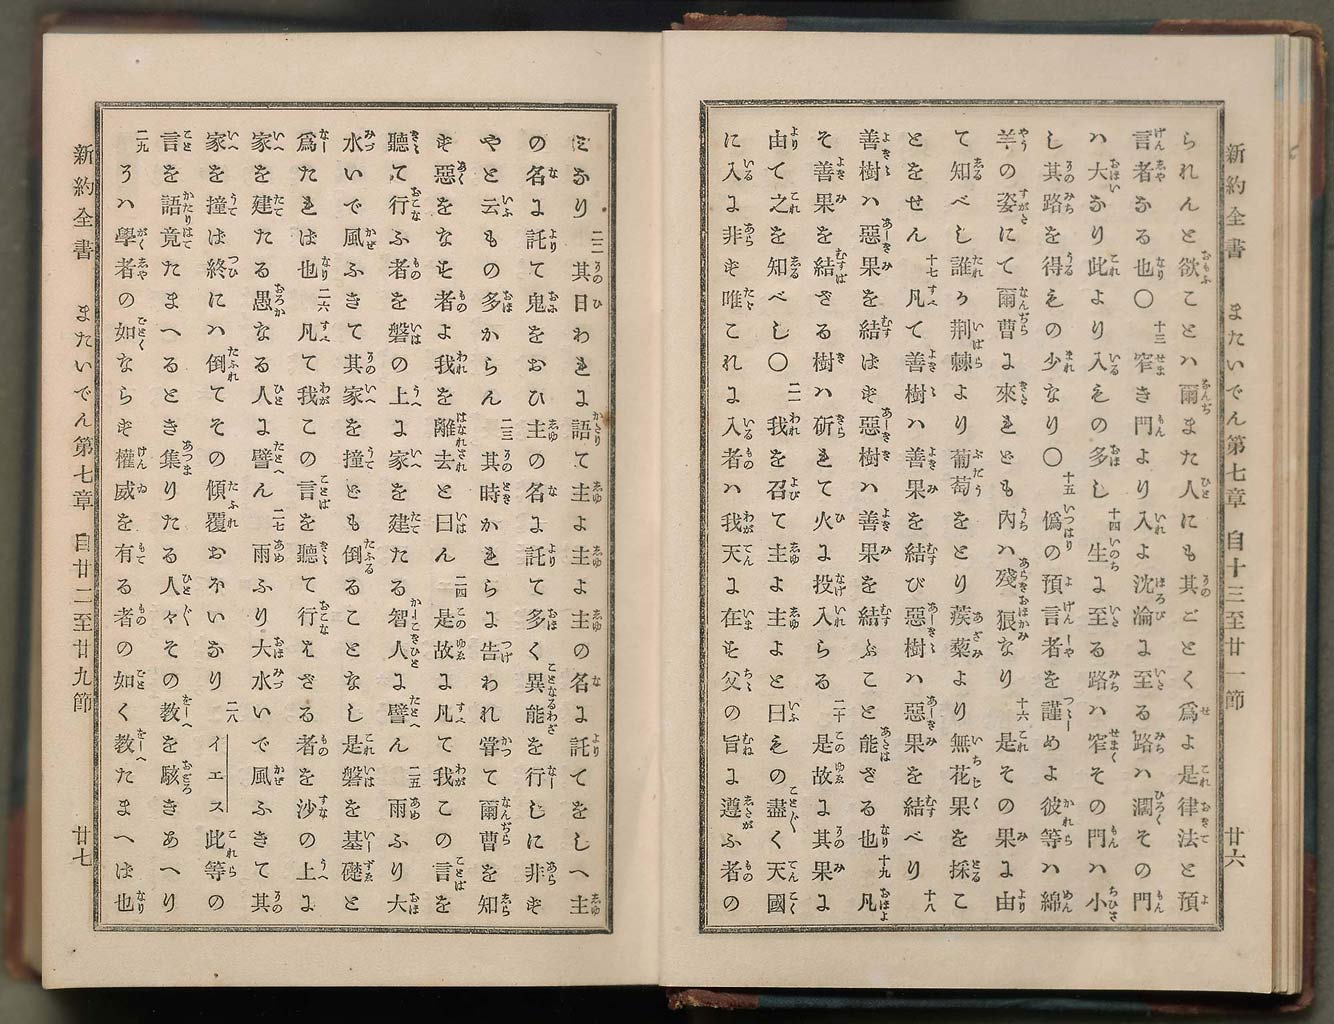 新約全書　またいでん第七章　自十三至廿一節　廿六
られんと欲ことハ爾また人にも其ごとく爲よ是律法と預
言者なる也〇十三窄き門より入よ沈淪に至る路ハ濶その門
ハ大なり此より入ものゝ多し十四生に至る路ハ窄その門ハ小
し其路を得ものゝ少なり〇十五僞の預言者を謹めよ彼等ハ綿
羊の姿にて爾曹に來れども內ハ殘狼なり十六是その果に由
て知べし誰か荆棘より葡萄をとり蒺藜より無花果を採こ
とをせん十七凡て善樹ハ善果を結び惡樹ハ惡果を結べり十八
善樹ハ惡果を結ばず惡樹ハ善果を結ぶこと能ざる也十九凡
そ善果を結ざる樹ハ斫れて火に投入らる二十是故に其果に
由て之を知べし〇二一我を召て主よ主よと曰もの盡く天國
に入に非ず唯これに入者ハ我天に在す父の旨に遵ふ者の
みなり二二其日われに語て主よ主よ主の名に託てをしへ主
の名に託て鬼をおひ主の名に託て多く異能を行しに非ず
やと云もの多からん二三其時かれらに告われ甞て爾曹を知
ず惡をなす者よ我を離去と曰ん二四是故に凡て我この言を
聽て行ふ者を磐の上に家を建たる智人に譬ん二五雨ふり大
水いで風ふきて其家を撞ども倒ることなし是磐を基礎と
爲たれば也二六凡て我この言を聽て行はざる者を沙の上に
家を建たる愚なる人に譬ん二七雨ふり大水いで風ふきて其
家を撞ば終にハ倒てその傾覆おほいなり二八イエス此等の
言を語竟たまへるとき集りたる人々その教を駭きあへり
二九そハ學者の如ならず權威を有る者の如く教たまへば也
新約全書　またいでん第七章　自廿二至廿九節　廿七